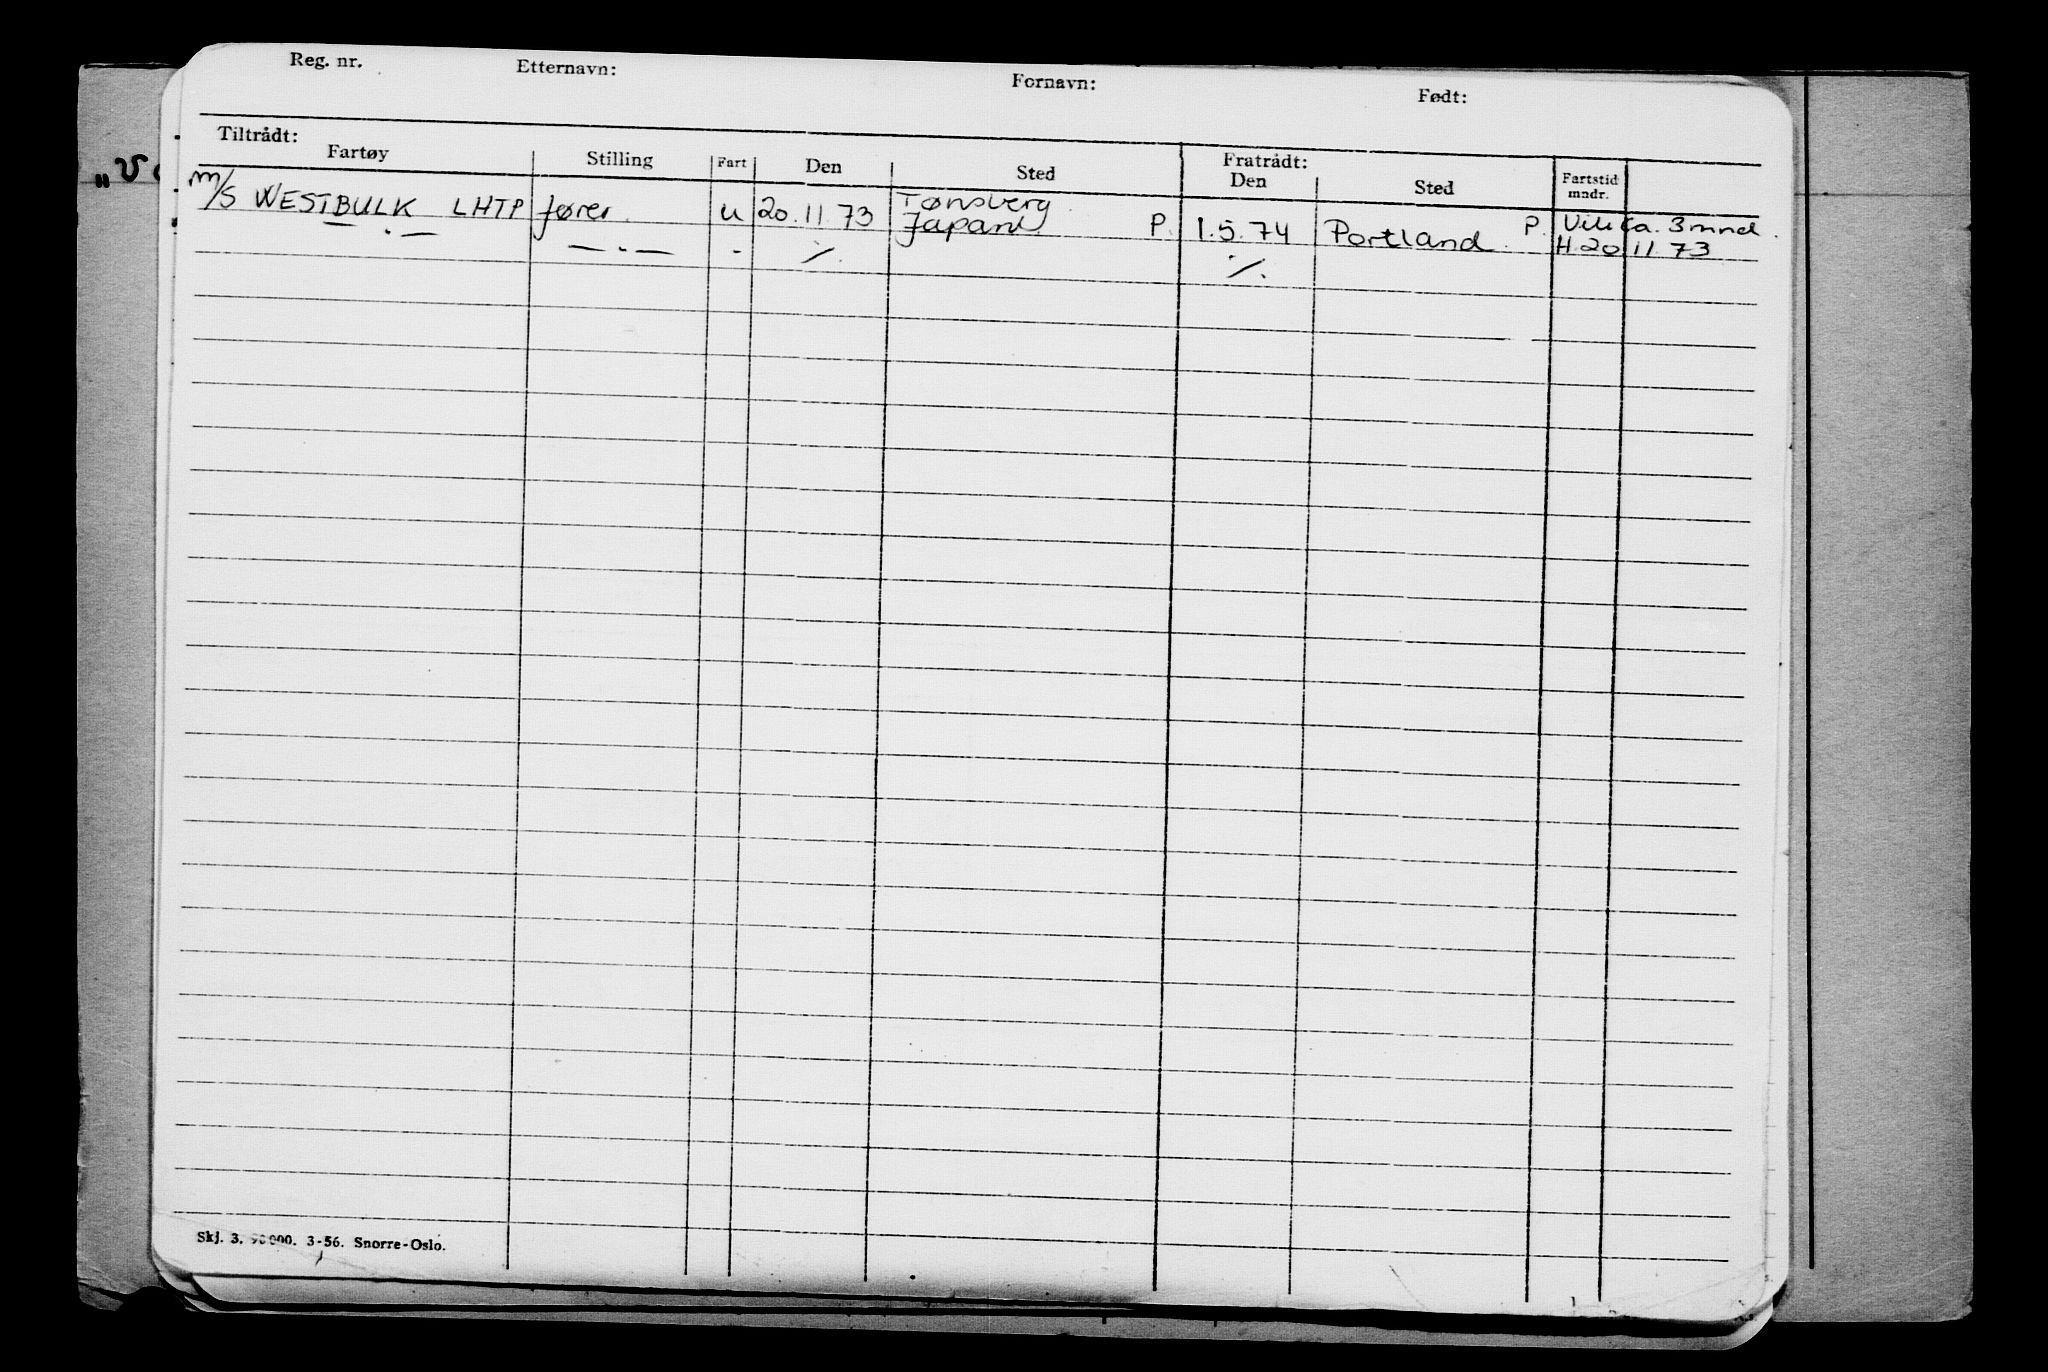 Reg. nr. Etternavn: Fornavn: Født:
Tiltrådt: Fratrådt:
Fartøy Stilling Fart Den Sted Den Sted Fartstid mndr.
M/S WESTBULK LHTP fører. u 20.11.73 Tønsberg P. 1.5.74 Portland P. ca. 3 mnd.
Japan H. 20.11.73
— . — — . — - ./. ./.
Skj. 3. 90000. 3-56. Snorre-Oslo.